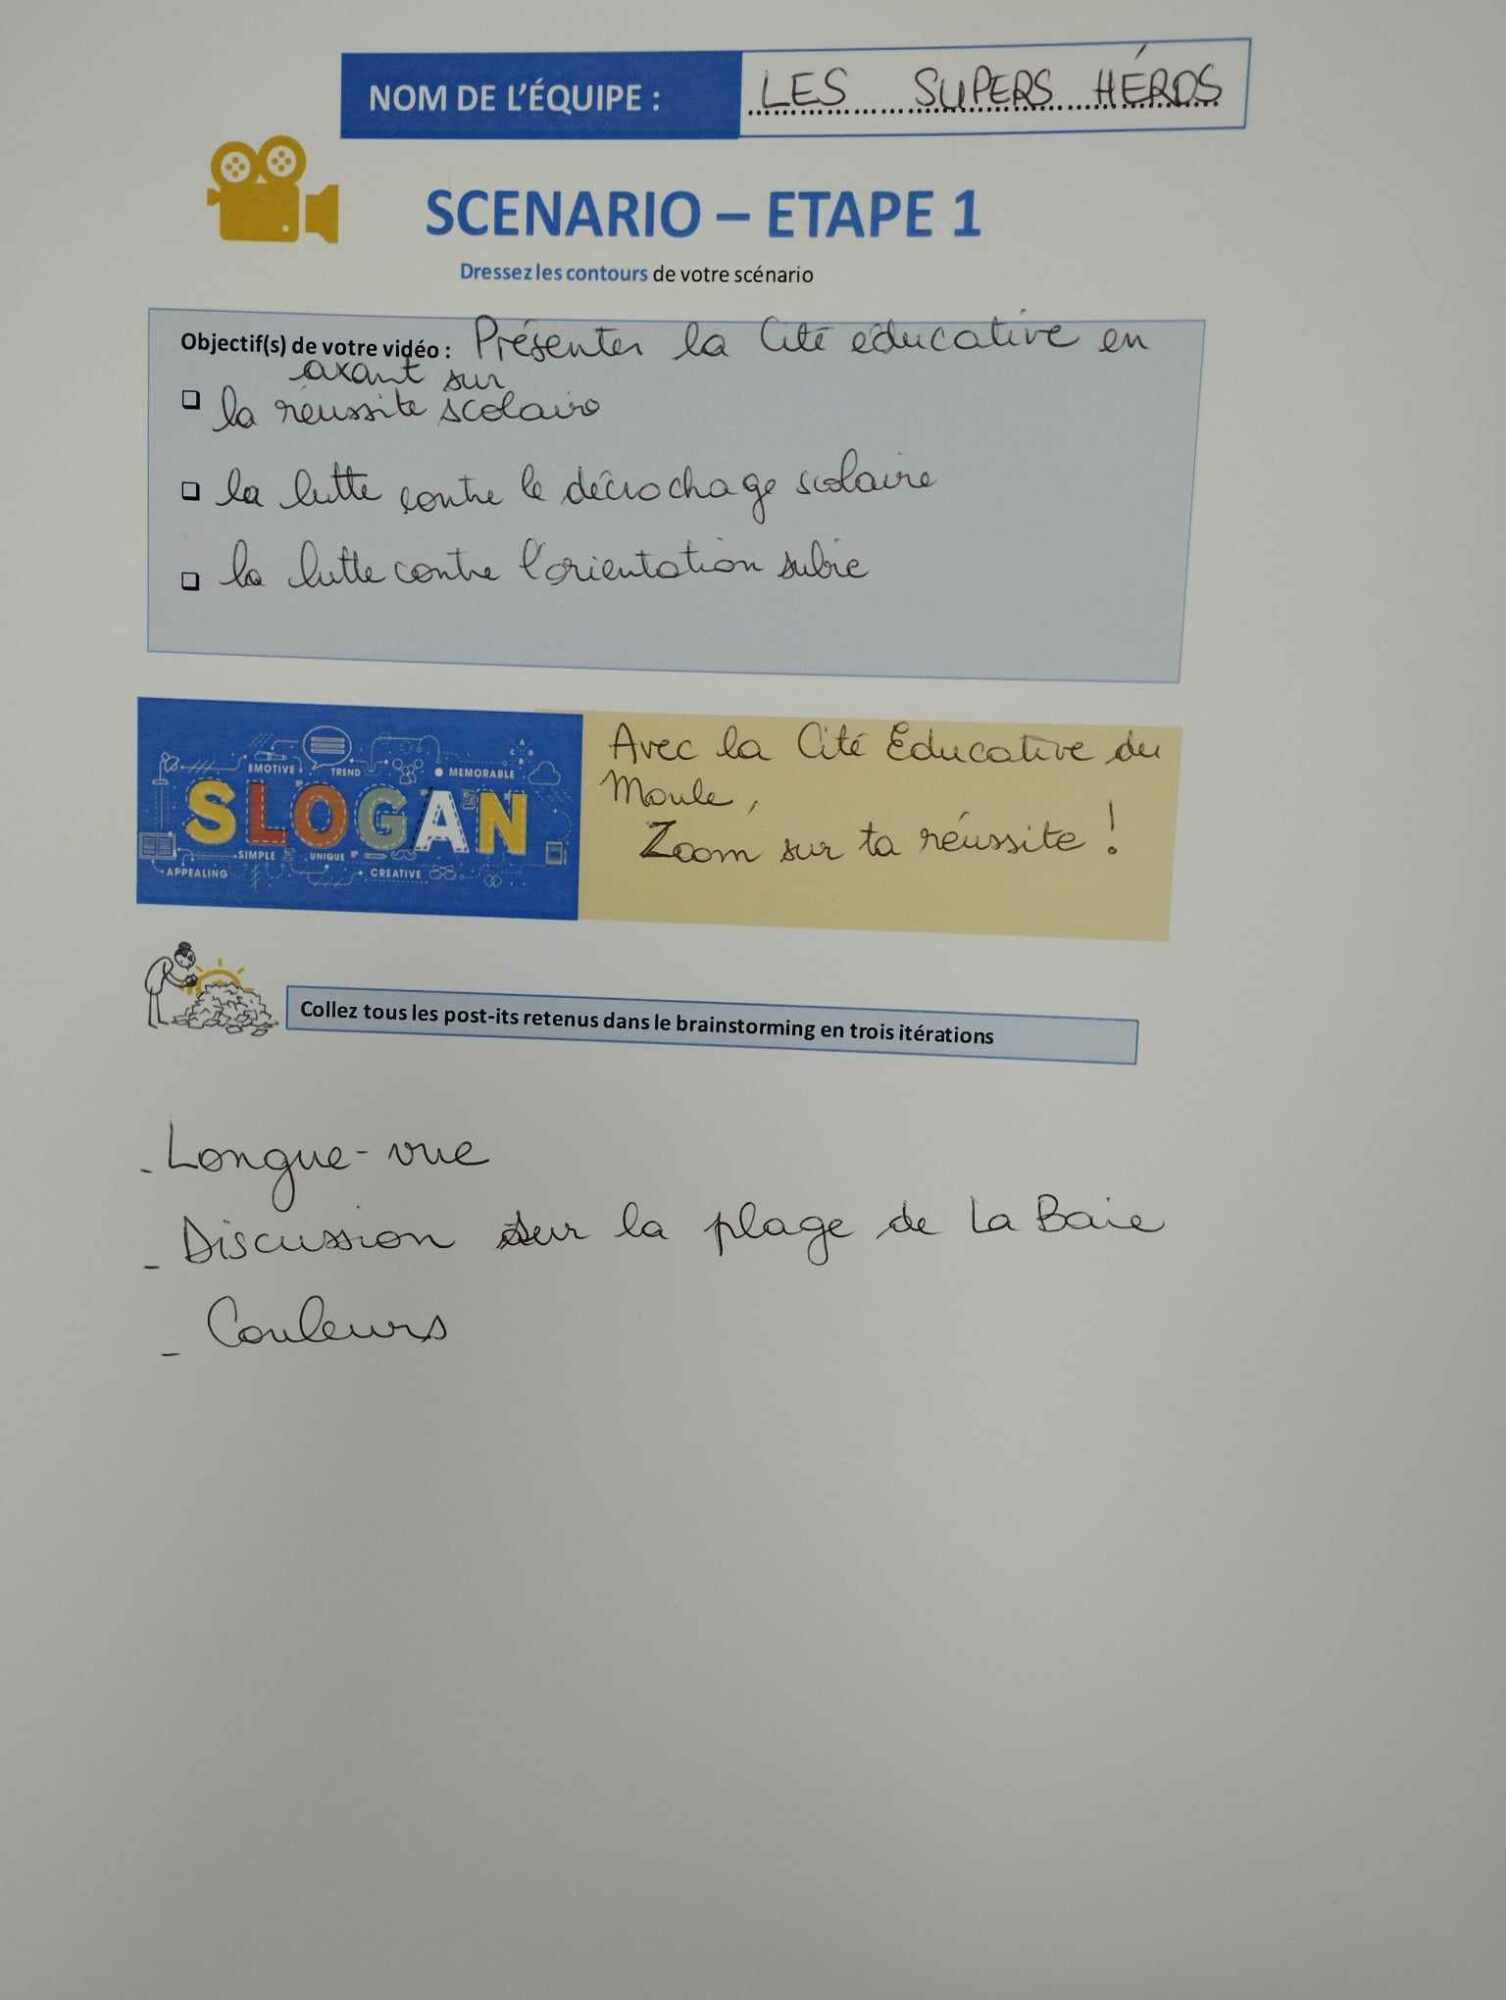 NOM DE L'ÉQUIPE : LES SUPERS HÉROS
SCENARIO – ETAPE 1
Dressez les contours de votre scénario
Objectif(s) de votre vidéo : Présenter la Cité éducative en
axant sur
la réussite scolaire
la lutte contre le décrochage scolaire
la lutte contre l'orientation subie
EMOTIVE TREND MEMORABLE
SLOGAN
SIMPLE UNIQUE
APPEALING CREATIVE
Avec la Cité Educative du
Moule,
Zoom sur ta réussite !
Collez tous les post-its retenus dans le brainstorming en trois itérations
- Longue-vue
- Discussion sur la plage de La Baie
- Couleurs